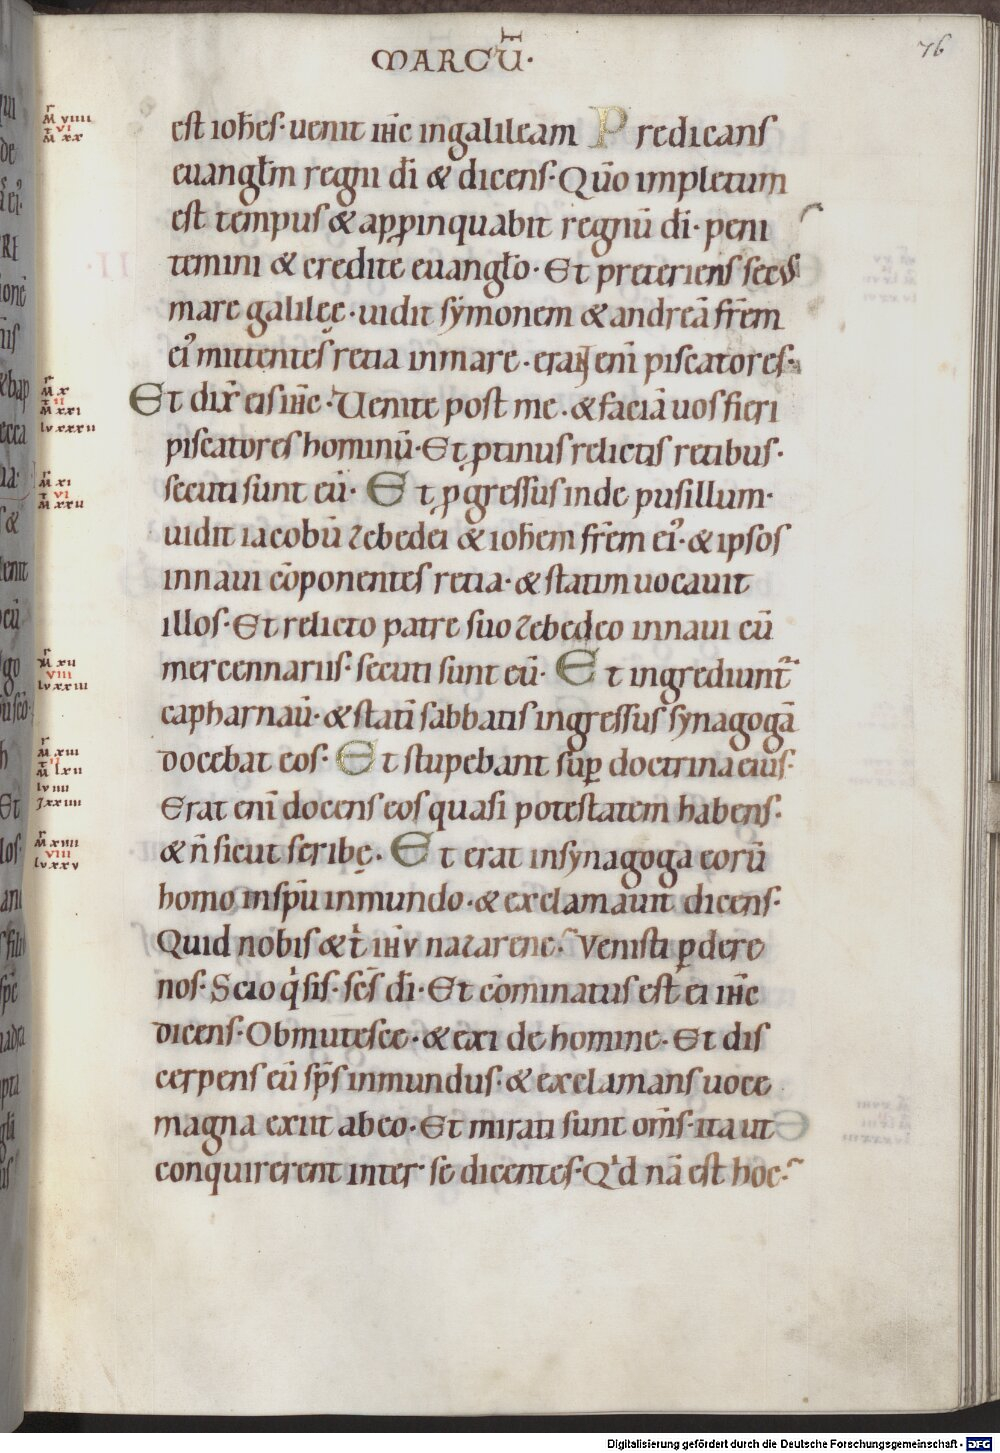 MARCŪ·
76
est ioh̄es· uenit ih̄c ingalileam Predicans
euangl̄m regni dī & dicens· Qūo impletum
est tempus & appinquabit regnū dī· peni
temini & credite euangl̄o· Et preteriens secus
mare galileę· uidit symonem & andreā fr̄em
ei᾽ mittentes retia inmare· erant eni᷉ piscatores·
Et dix̄ eis ih̄c· Uenite post me· & faciā uos fieri
piscatores hominū· Et ptinus relictis retibus·
secuti sunt eū· Et pgressus inde pusillum·
uidit iacobū zebedei & ioh̄em fr̄em ei᾽· & ipsos
innaui cōponentes retia· & statim uocauit
illos· Et relicto patre suo zebedeo innaui cū
mercennariis· secuti sunt eū· Et ingrediunt᷉
capharnaū· & statī sabbatis ingressus synagogā
docebat eos· Et stupebant sup doctrina eius·
Erat enī docens eos quasi potestatem habens·
& n̄ sicut scribę· Et erat insynagoga eorū
homo inspū inmundo· & exclamauit dicens·
Quid nobis & t͛ ih̄v nazarene· Venisti pdere
nos· Scio q͛ sis· sc̄s dī· Et cōminatus est ei ih̄c
dicens· Obmutesce· & exi de homine· Et dis
cerpens eū sp̄s inmundus· & exclamans uoce
magna exiit abeo· Et mirati sunt om̄s· ita ut
conquirerent inter se dicentes· Q͛d nā est hoc·
M viiii
VI
M xx
M x
II
M xxi
lv xxxii
M xi
VI
M xxii
M xii
VIII
lv xxiii
M xiii
II
M lxii
lv iiii
J xxiiii
M xiiii
VIII
lv xxv
Digitalisierung gefördert durch die Deutsche Forschungsgemeinschaft - DFG